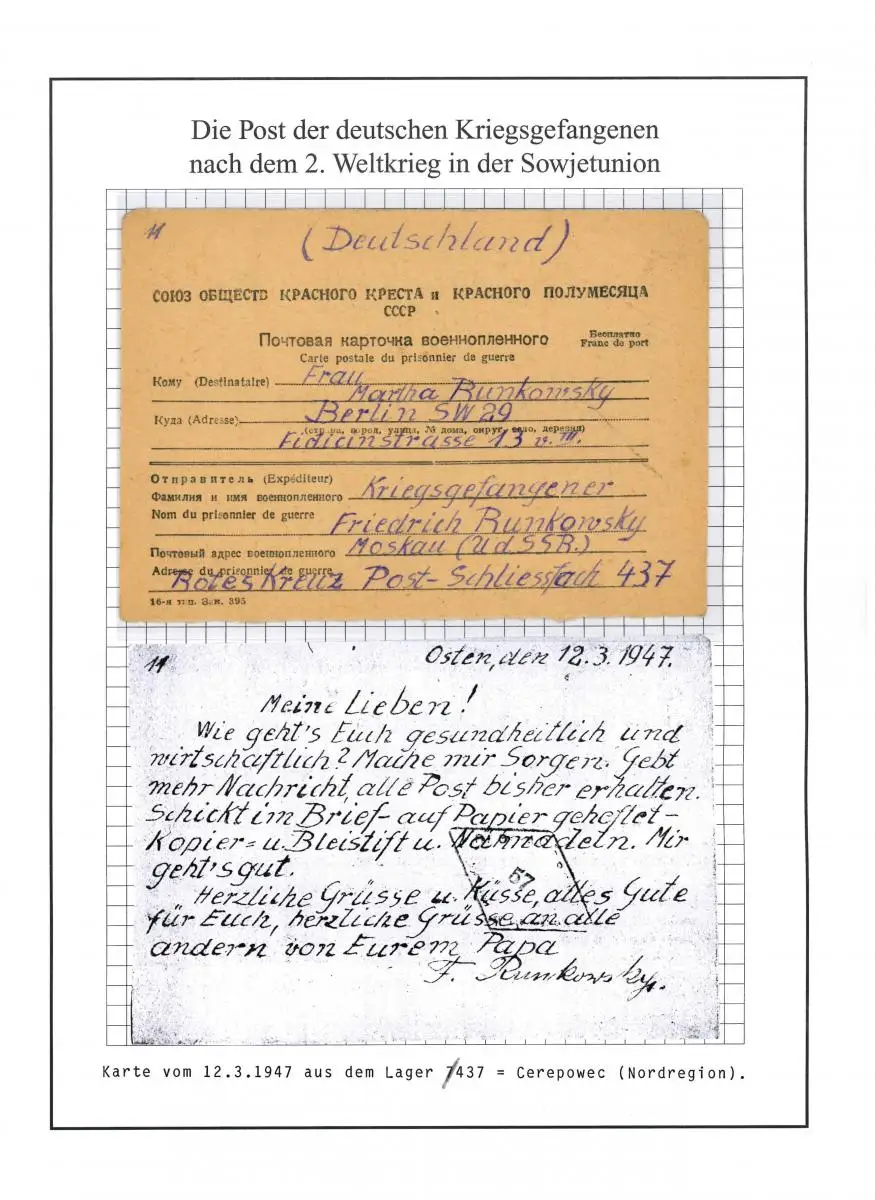 Die Post der deutschen Kriegsgefangenen
nach dem 2. Weltkrieg in der Sowjetunion
11
(Deutschland)
СОЮЗ ОБЩЕСТВ КРАСНОГО КРЕСТА и КРАСНОГО ПОЛУМЕСЯЦА
СССР
Почтовая карточка военнопленного
Бесплатно
Carte postale du prisonnier de guerre
Franc de port
Кому (Destinataire) Frau
Martha Runkowsky
Куда (Adresse) Berlin SW 29
(страна, город, улица, № дома, округ, село, деревня)
Fidicinstrasse 13 v. III.
Отправитель (Expéditeur)
Фамилия и имя военнопленного Kriegsgefangener
Nom du prisonnier de guerre Friedrich Runkowsky
Почтовый адрес военнопленного Moskau (U.d.SSR.)
Adresse du prisonnier de guerre
Rotes Kreuz Post-Schliessfach 437
16-я тип. Зак. 395
11
Osten, den 12.3.1947.
Meine Lieben!
Wie geht's Euch gesundheitlich und
wirtschaftlich? Mache mir Sorgen. Gebt
mehr Nachricht, alle Post bisher erhalten.
Schickt im Brief- auf Papier geheftet-
Kopier= u. Bleistift u. Nähnadeln. Mir
geht's gut.
57
Herzliche Grüsse u. Küsse, alles Gute
für Euch, herzliche Grüsse an alle
andern von Eurem Papa
F. Runkowsky.
Karte vom 12.3.1947 aus dem Lager 7/437 = Cerepowec (Nordregion).